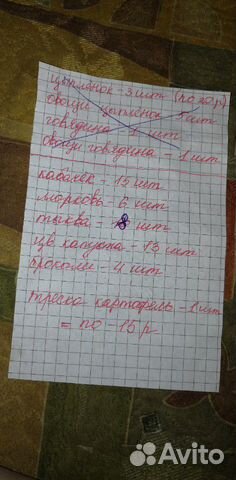 цыпленок - 3 шт (по 20 р)
овощи цыпленок 5 шт
говядина - 1 шт
овощи говядина - 1 шт
кабачек - 15 шт
морковь - 6 шт
тыква - 8 шт
цв капуста - 13 шт
броколи - 4 шт
треска картофель - 1 шт
= по - 15 р
Avito